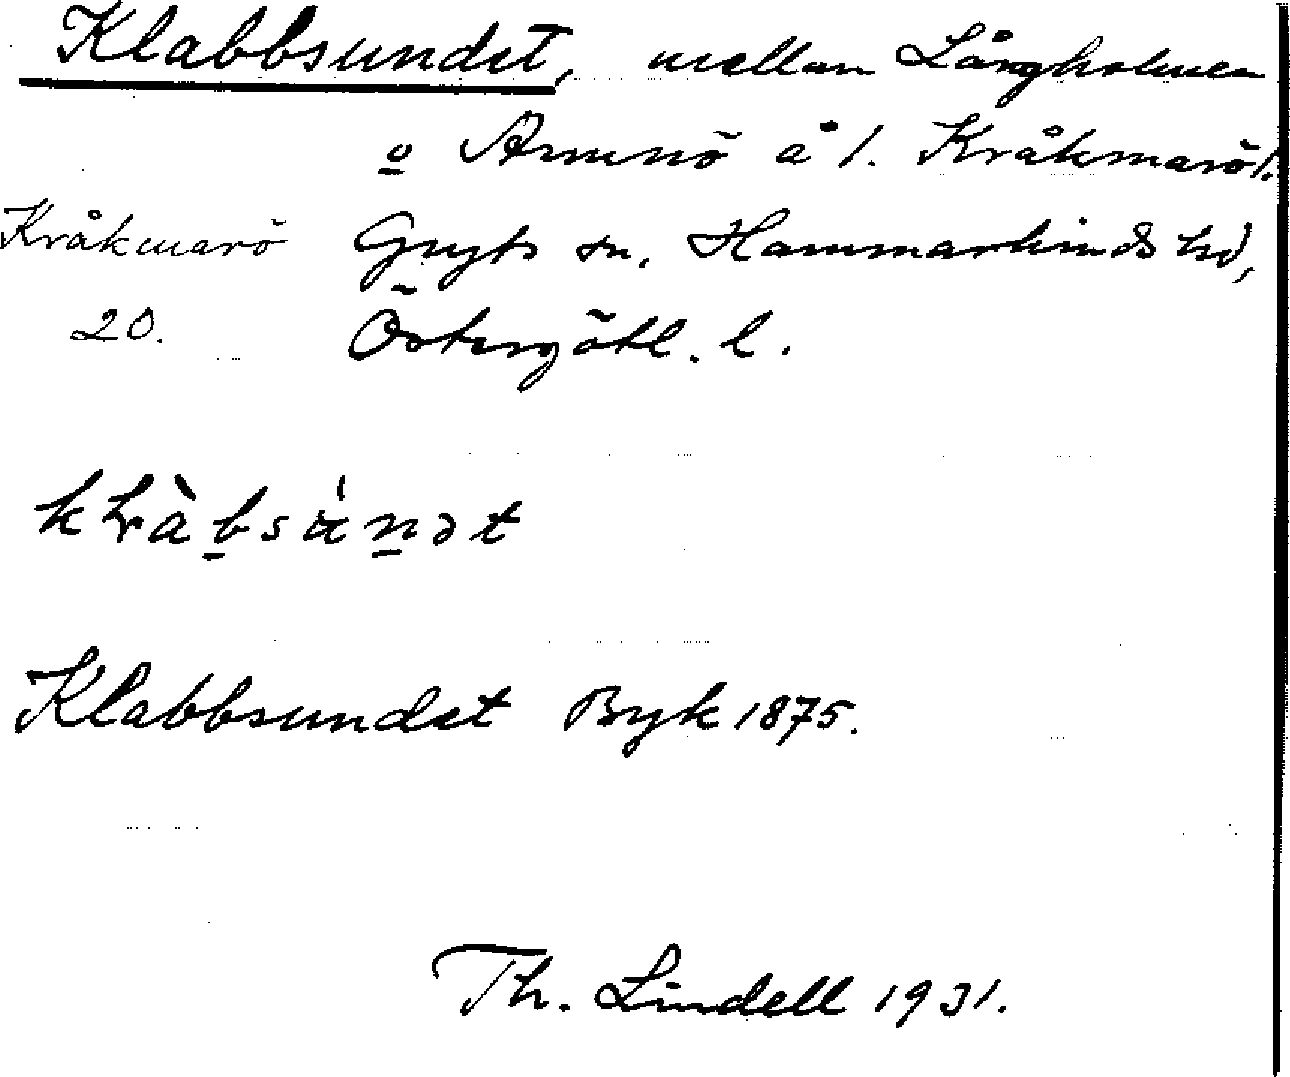 Klabbsundet, mellan Långholmen
o Armnö å 1. Kråkmarö 1.
Kråkmarö Gryts sn, Hammarkinds hd,
20. Östergötl. l.
Klabbsundet Byk 1875.
Th. Lindell 1931.